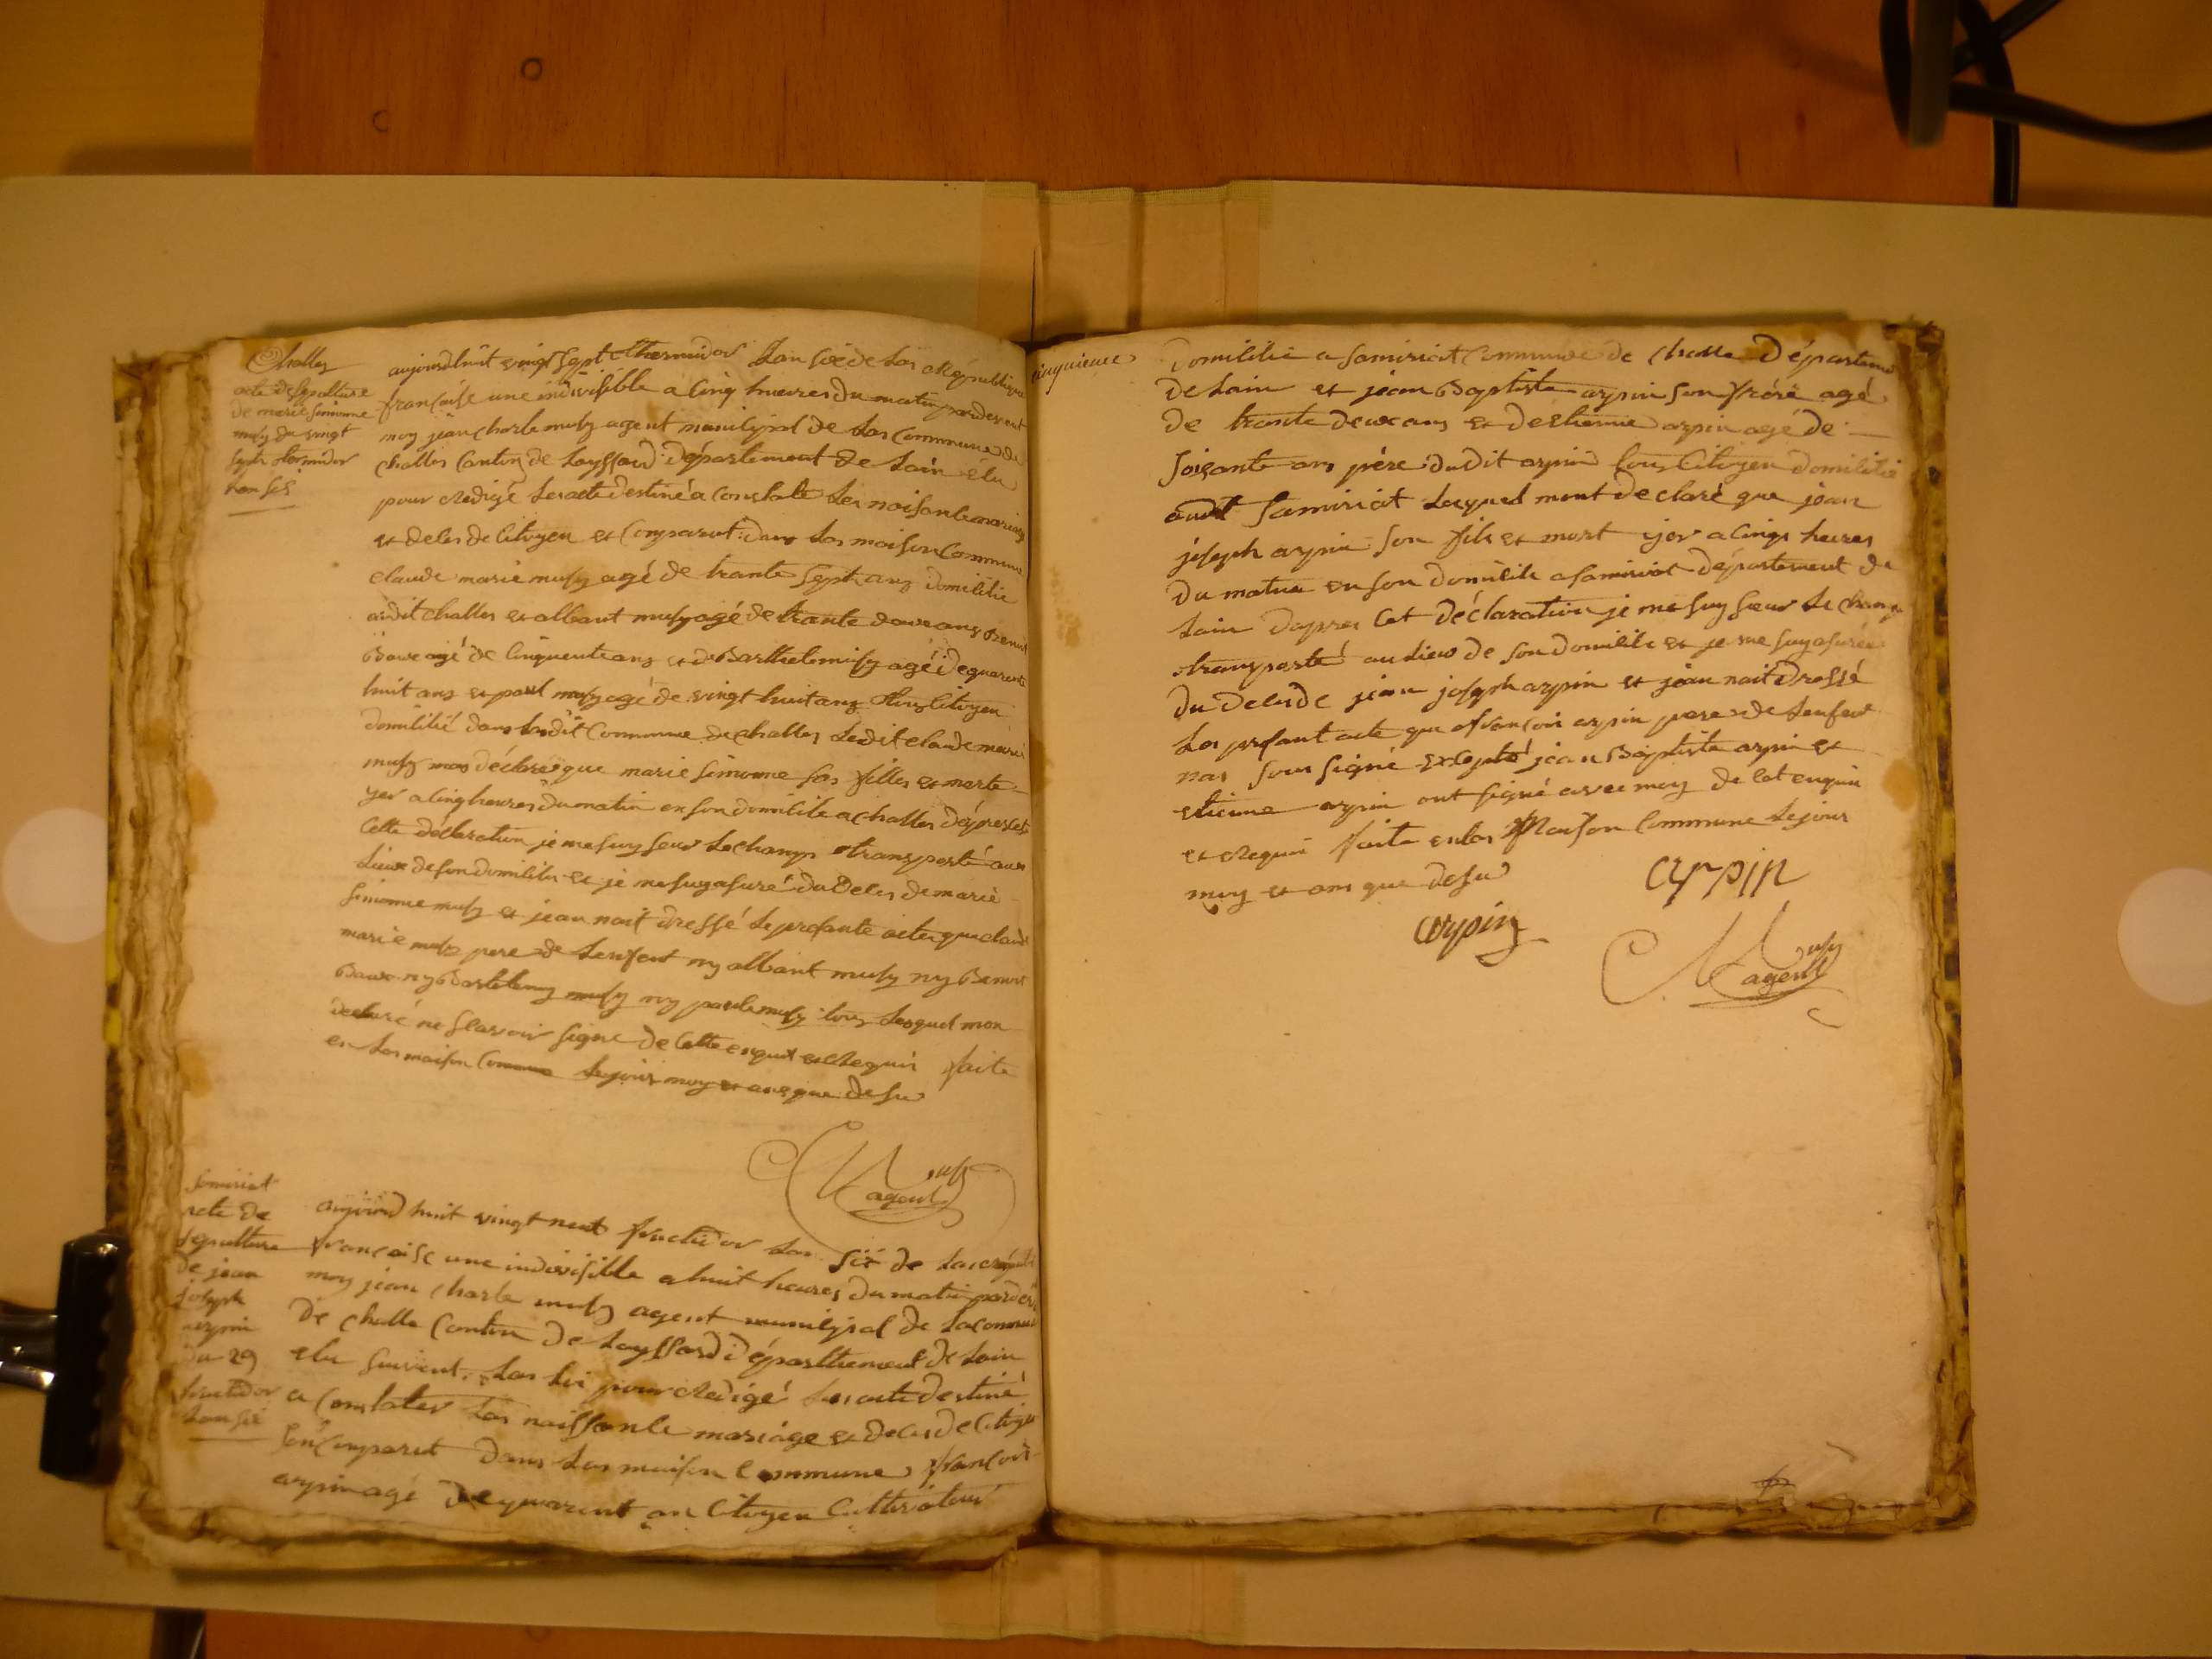 Challes
acte de sepulture
de marie simonne
musy du vingt
sept thermidor
lan six
aujourdhuit vingt sept thermidor Lan sixe de las République
francaise une indivisible a cinq hueres du matin pardevent
moy jean charle musy agent municipal de las Commune de
challes canton de Leyssard département de Lain elu
pour rédigé les acte destiné a constate les naisante mariage
et deles de Citoyen et comparut dans las maison Commune
claude marie musy agé de trante sept ans domicilié
audit challes et albant musy agé de trante deuxe ans Benoit
Baux agé de cinquente ans et de Barthelemi musy agé de quarente
huit ans et paul musy agé de vingt huit ans tous Citoyen
domicilié dans ladit Commune de challes Ledit claude marie
musy mas déclaré que marie simonne sas filles et morte
yer a cinq heures du matin en son domicile a challes dapres cete
Cette déclaration je me suy seur le champs transporté aux
lieux de son domicile et je me suy asuré du deles de marie
simonne musy et jean nait dressé le presante acte que claude
marie musy pere de Lenfent ny albant musy ny Benoit
Baux ny Bartelemy musy ny paule musy tous lesquel mon
declaré ne scavoir signe de cette enquit et requis faite
en las maison Commune le jour moy et ans que desu
Musy
agent
Samiriat
acte de
sepulture
de jean
joseph
arpin
du 29
fructidor
lan six
aujourd huit vingt neut fructidor Lan six de las républi
francaise une indivisible a huit heures du matin pardev
moy jean charle musy agent municipal de la commune
de challe Canton de Leyssard département de Lain
elu suivent las loi pour rédigé les acte destiné
a constater las naissante mariage et deces de citoyen
sont comparut dans las maison Commune francois
arpin agé de quarent an Citoyen Cultivateur
cinquieme
domicilié a samiriat Commune de challe Départeme
de Lain et jean Baptiste arpin son fréré agé
de trante deux ans et de etienne arpin agé de
soisante ans pére dudit arpin tous Citoyen domicilié
audit Samiriat Lesquel mont declaré que jean
joseph arpin son fils et mort yer a cinqs heures
du matin en son domicile a samiriat département de
Lain dapres cet déclaration je me suy seur le champ
transporté au lieu de son domicile et je me suy asurée
du deles de jean joseph arpin et jean nait dressé
las presant acte que francois arpin pere de lenfent
nas sous signé excepté jean Baptiste arpin et
etienne arpin ont signé avec moy de cet enquis
et requis faite en las Maison Commune le jour
moy et ans que desu
arpin
arpin
Musy
agent